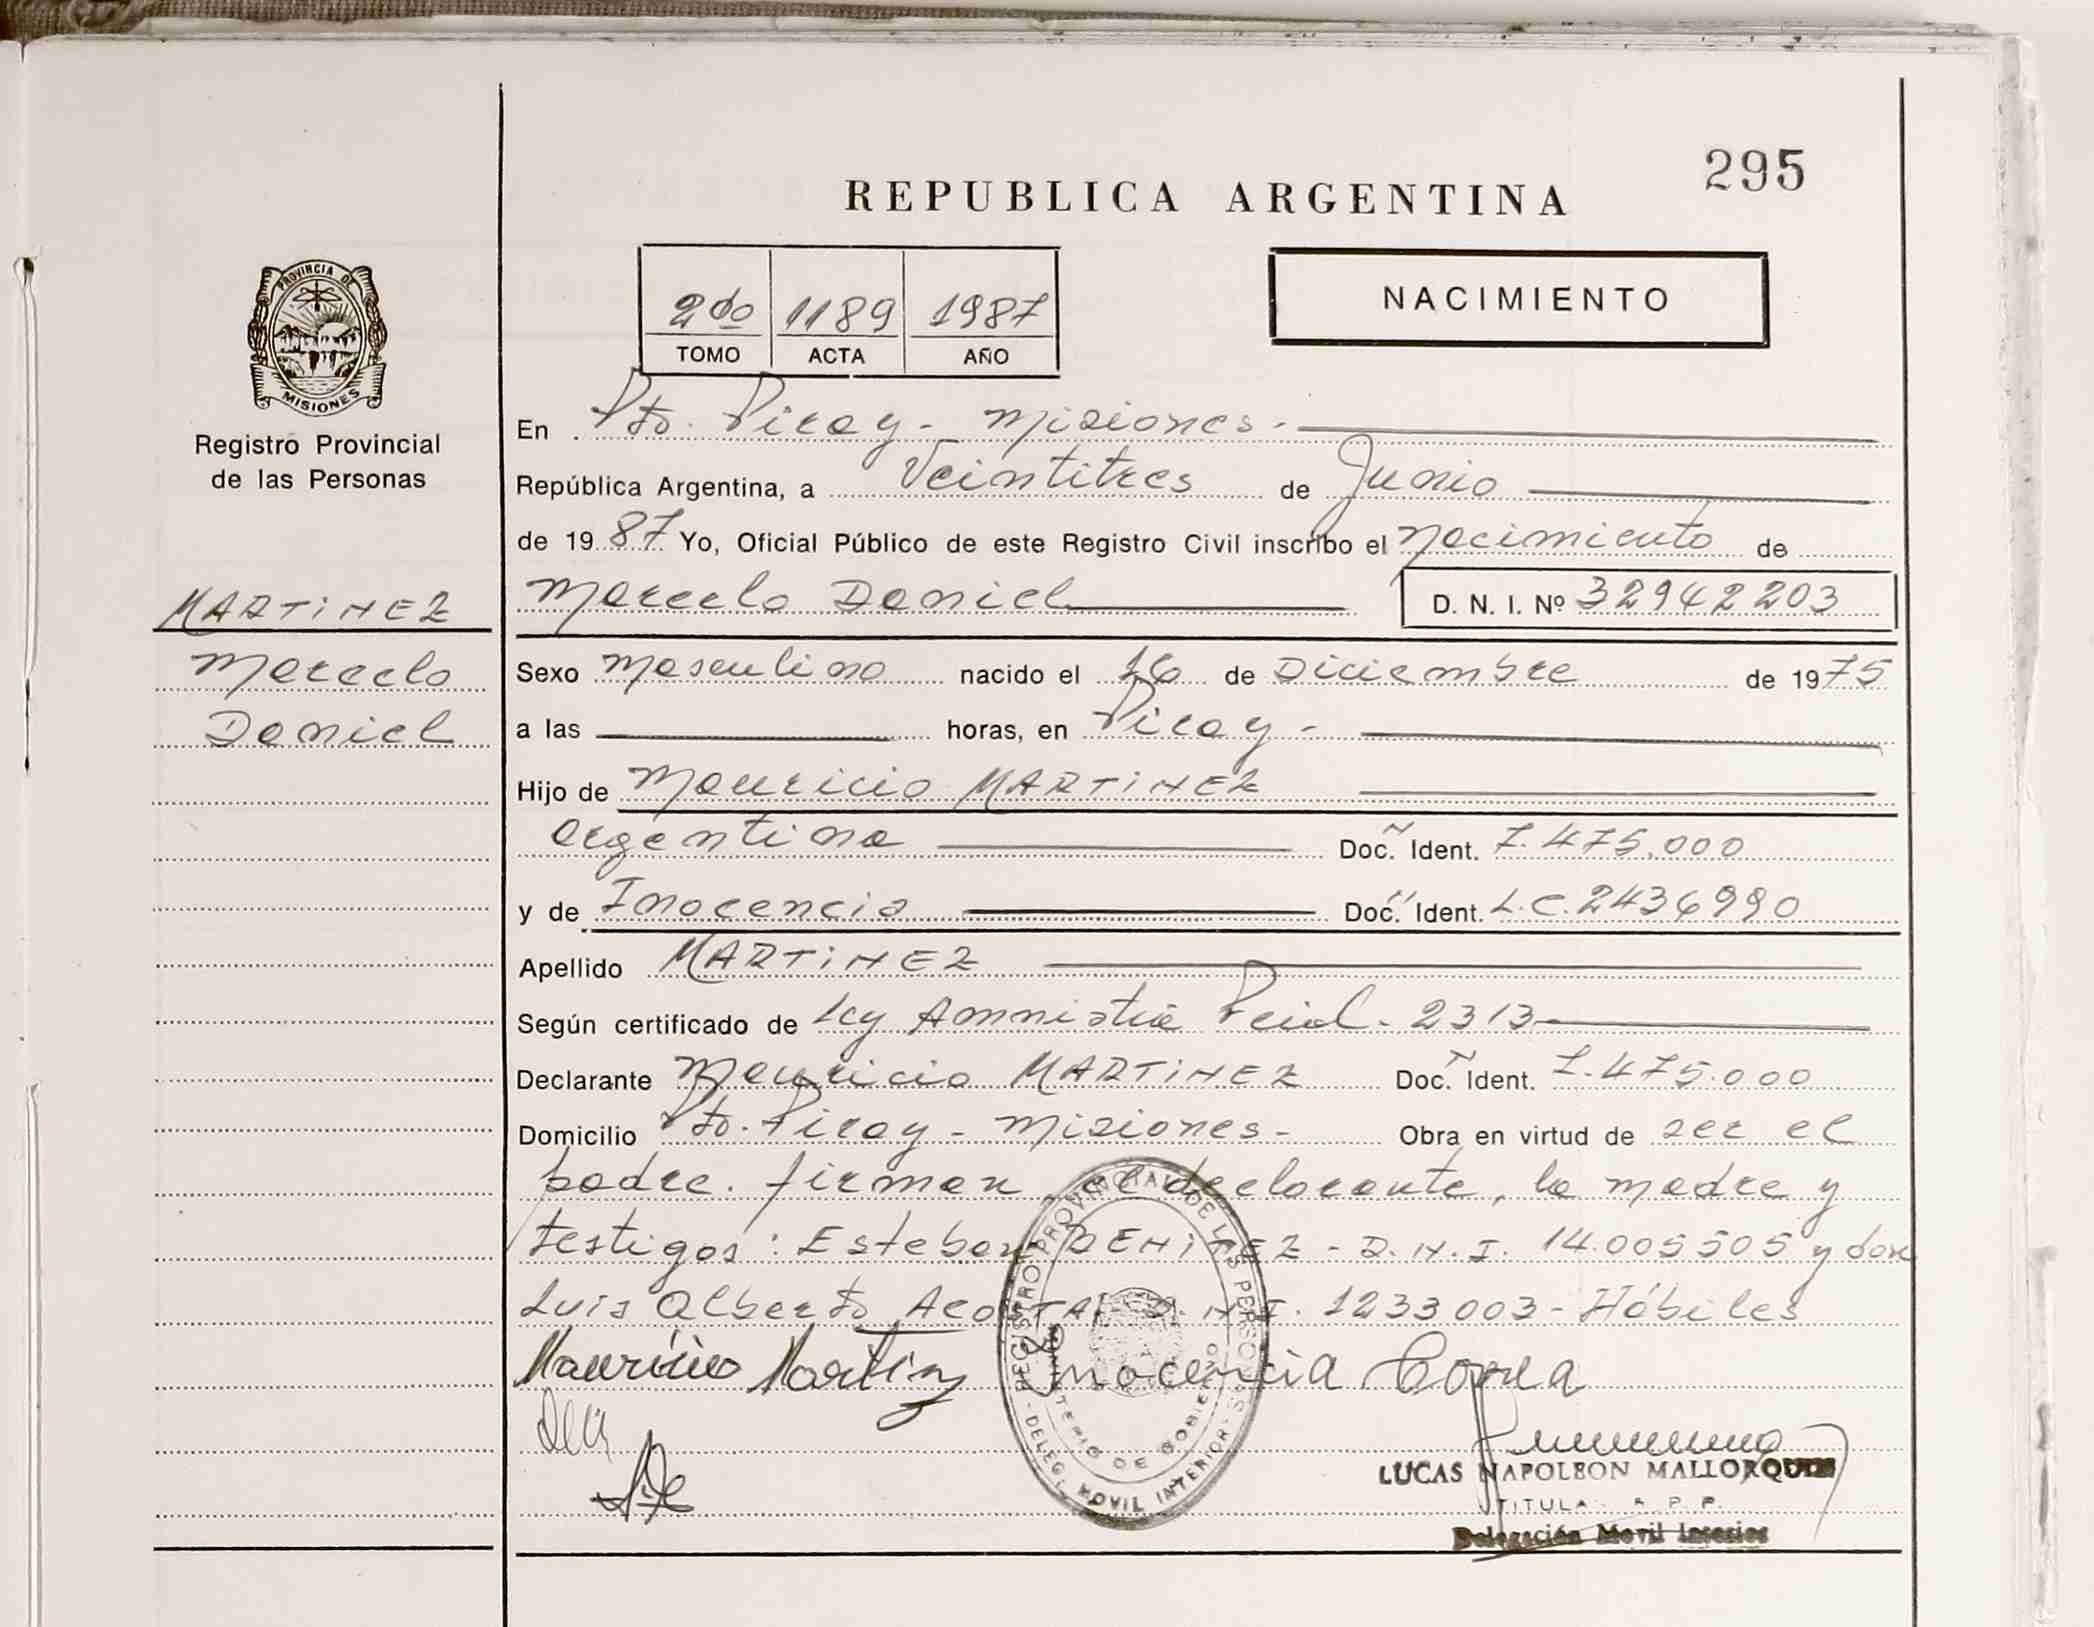 295
REPUBLICA ARGENTINA
2do 1189 1987
TOMO ACTA AÑO
NACIMIENTO
PROVINCIA DE
MISIONES
Registro Provincial
de las Personas
En Pto. Piray - Misiones -
República Argentina, a Veintitres de Junio
de 1987 Yo, Oficial Público de este Registro Civil inscribo el Nacimiento de
Marcelo Daniel D. N. I. Nº 32942203
MARTINEZ
Marcelo
Daniel
Sexo Masculino nacido el 16 de Diciembre de 1975
a las horas, en Piray -
Hijo de Mauricio MARTINEZ
Argentina Doc. Ident. 7.475.000
y de Inocencia Doc. Ident. L.C. 2436990
Apellido MARTINEZ
Según certificado de Ley Amnistia Pcial - 2313
Declarante Mauricio MARTINEZ Doc. Ident. 7.475.000
Domicilio Pto. Piray - Misiones - Obra en virtud de ser el
padre. firman el declarante, la madre y
testigos: Esteban BENITEZ - D.N.I. 14.005505 y don
Luis Alberto ACOSTA D.N.I. 1233003 - Hábiles
Mauricio Martinz Inocencia Correa
REGISTRO PROVINCIAL DE LAS PERSONAS
MINISTERIO DE GOBIERNO
DELEG. MOVIL INTERIOR
LUCAS NAPOLEON MALLORQUIN
TITULAR R. P. P.
Delegación Movil Interior